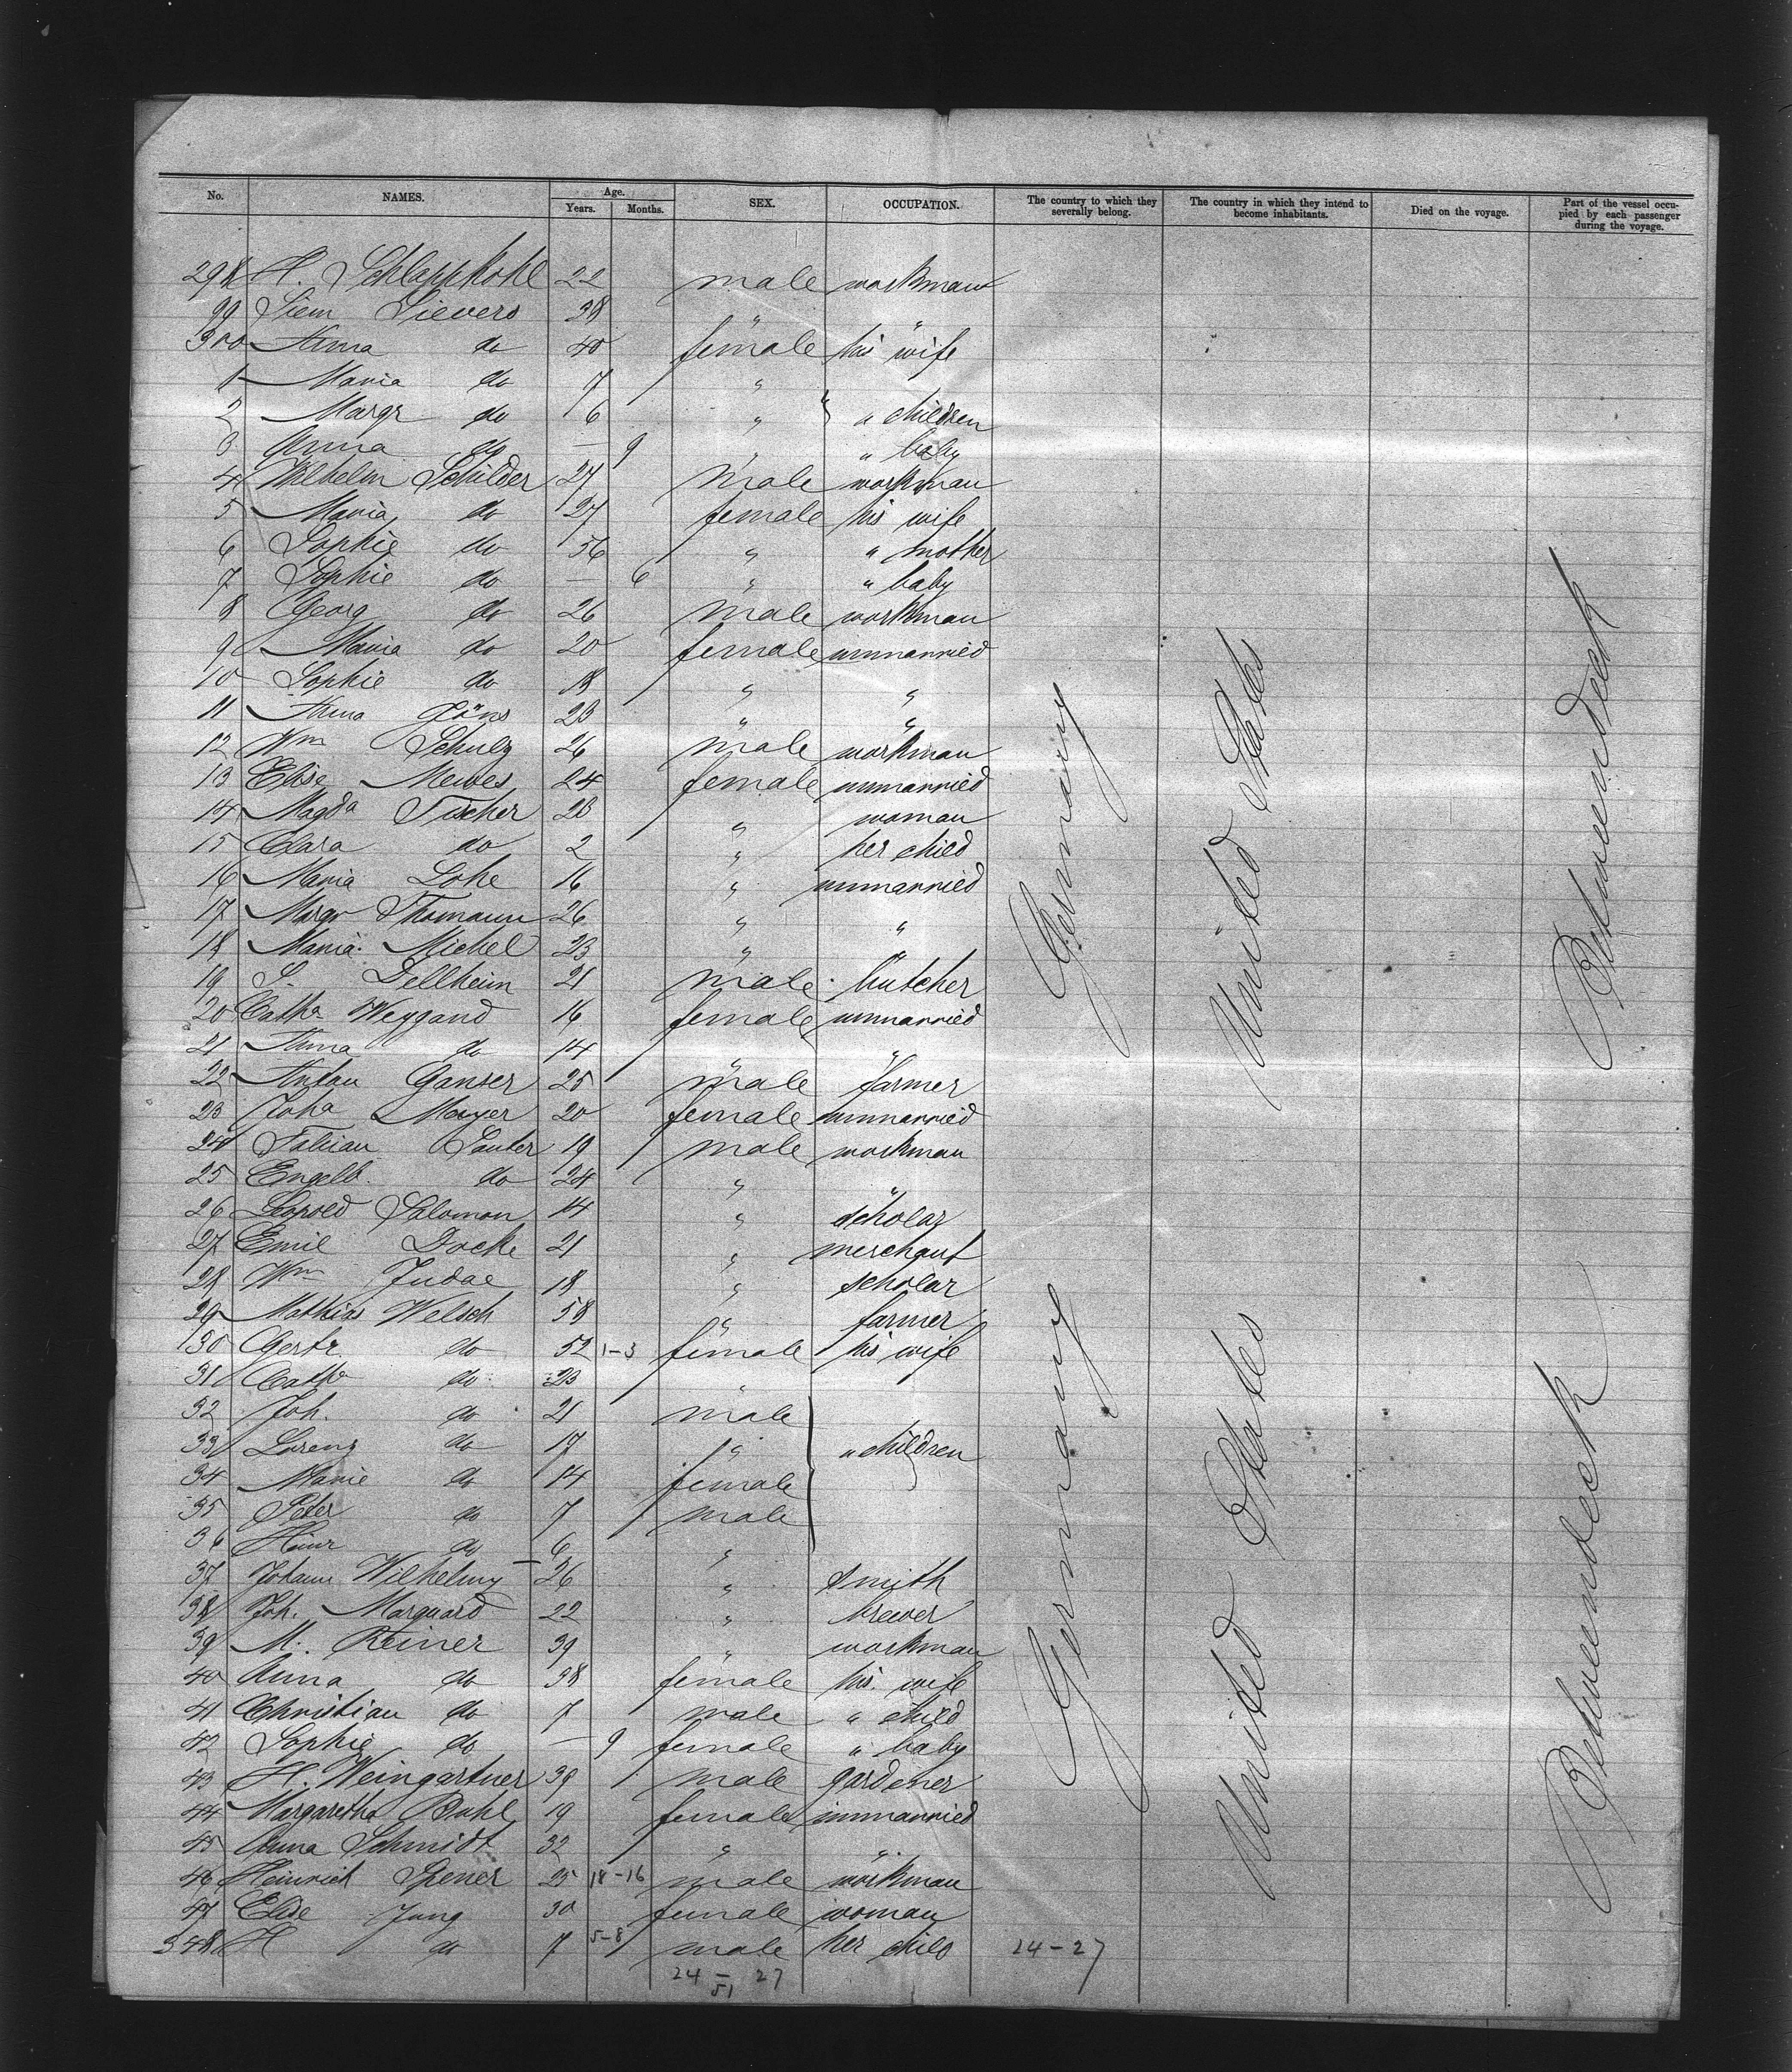 No. NAMES. Age. Years. Months. SEX. OCCUPATION. The country to which they severally belong. The country in which they intend to become inhabitants. Died on the voyage. Part of the vessel occupied by each passenger during the voyage.
298 H. Schlappkohl 22 male workman
99 Siem Sievers 38 " "
300 Anna do 40 female his wife
1 Maria do 7 "
2 Margr do 6 " " children
3 Anna do — 9 " " baby
4 Wilhelm Schilder 27 male workman
5 Maria do 27 female his wife
6 Sophie do 56 " " mother
7 Sophie do — 6 " " baby
8 Georg do 26 male workman
9 Maria do 20 female unmarried
10 Sophie do 18 " "
11 Anna Göns 23 " "
12 Wm Schulz 26 male workman
13 Elise Mewes 24 female unmarried
14 Magda Fischer 23 " woman
15 Clara do 2 " her child
16 Maria Lohe 16 " unmarried
17 Margr Thomann 26 " "
18 Maria Michel 23 " "
19 S. Dellheim 21 male butcher
20 Catha Weygand 16 female unmarried
21 Anna do 14 " "
22 Anton Ganser 25 male farmer
23 Joha Mayer 20 female unmarried
24 Fabian Sauter 19 male workman
25 Engelb. do 24 " "
26 Leopold Salomon 14 " scholar
27 Emil Docke 21 " merchant
28 Wm Judae 18 " scholar
29 Mathias Welsch 58 " farmer
30 Gertr. do 52 1-3 female his wife
31 Catha do 23 "
32 Joh. do 21 male
33 Lorenz do 17 " " children
34 Marie do 14 female
35 Peter do 7 male
36 Heinr do 6 "
37 Johann Wilhelmy 26 " smith
38 Joh. Marquard 22 " brewer
39 M. Reiner 39 " workman
40 Anna do 38 female his wife
41 Christian do 7 male " child
42 Sophie do — 9 female " baby
43 H. Weingartner 39 male gardener
44 Margaretha Buhl 19 female unmarried
45 Anna Schmidt 32 " "
46 Heinrich Spener 25 18-16 male workman
47 Elise Jung 30 female woman
348 H do 7 5-8 male her child 24-27
24 - 27
51
Germany
United States
Betweendeck
Germany
United States
Betweendeck